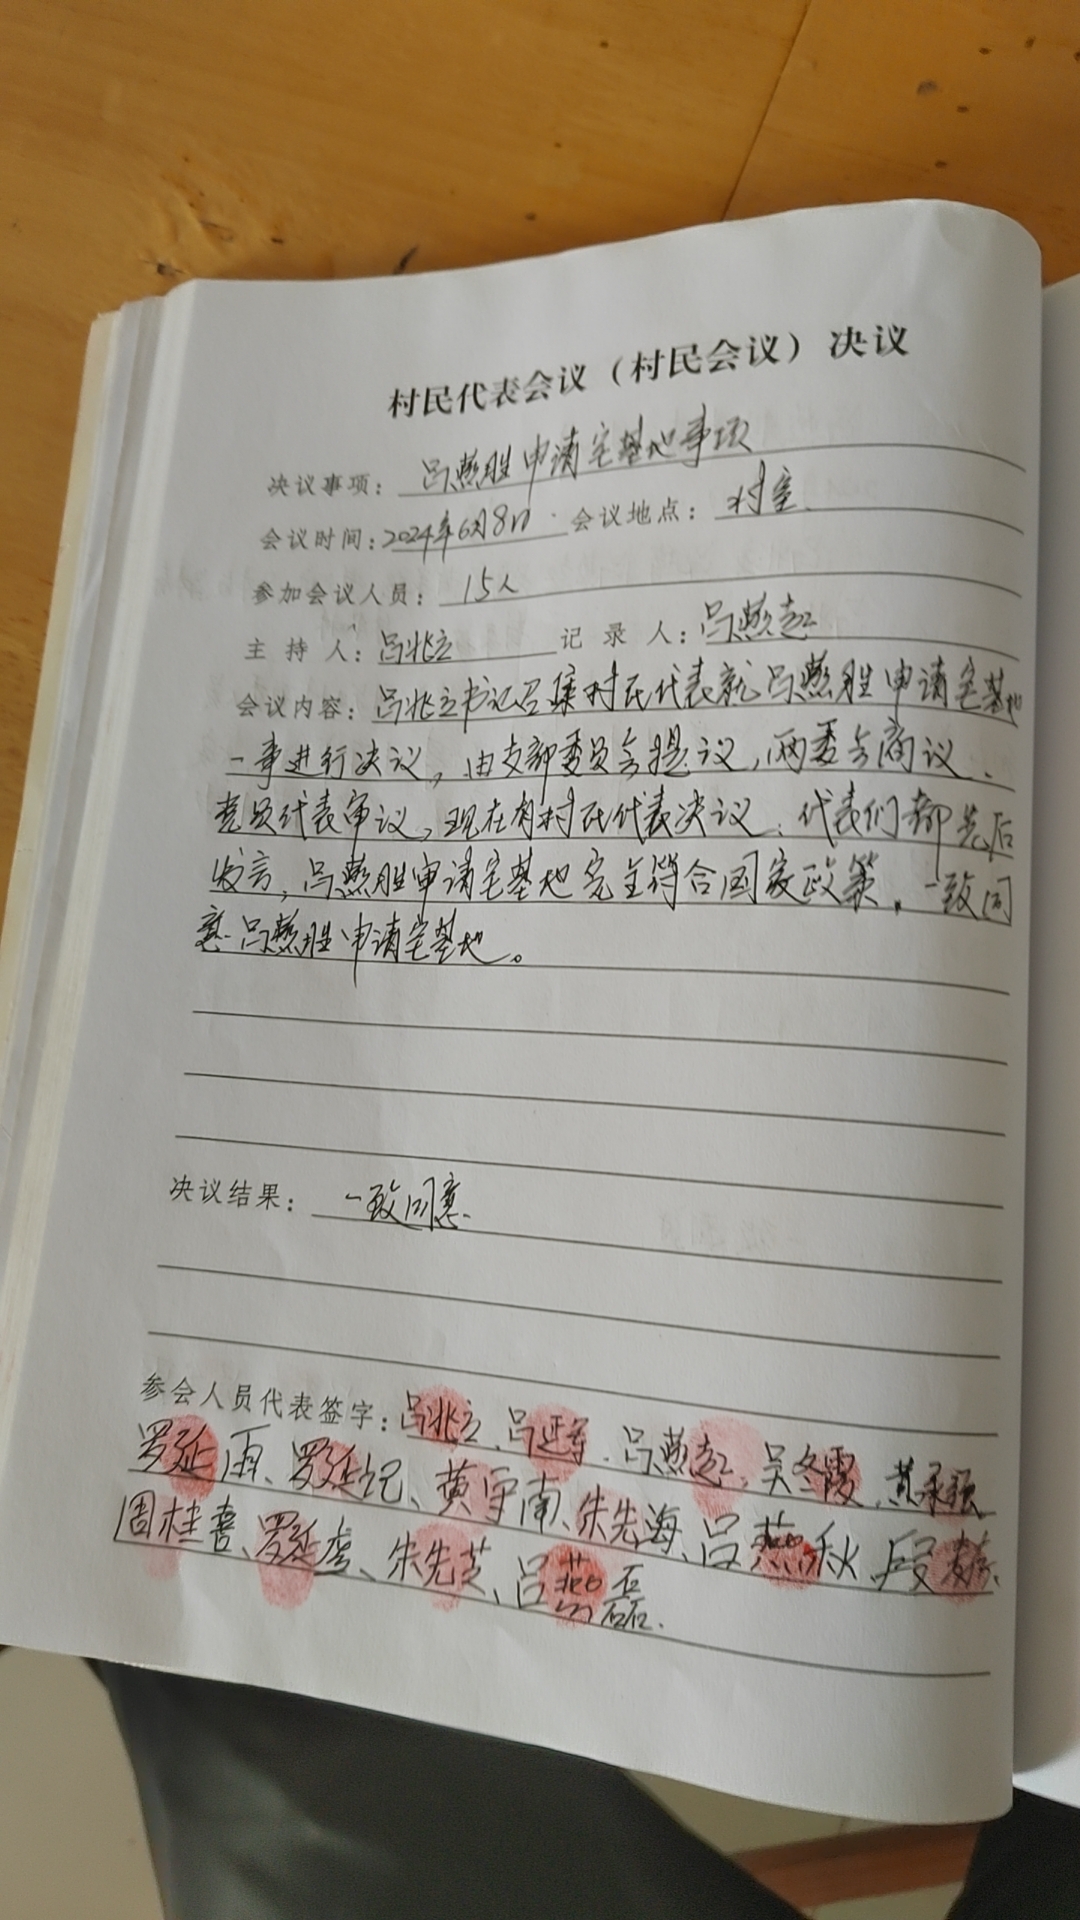 村民代表会议（村民会议）决议
决议事项：吕燕胜申请宅基地事项
会议时间：2024年6月8日 会议地点：村室
参加会议人员：15人
主持人：吕兆立 记录人：吕燕起
会议内容：吕兆立书记召集村民代表就吕燕胜申请宅基地
一事进行决议，由支部委员会提议，两委会商议、
党员代表审议，现在有村民代表决议。代表们都先后
发言，吕燕胜申请宅基地完全符合国家政策。一致同
意吕燕胜申请宅基地。
决议结果：一致同意
参会人员代表签字：吕兆立、吕延、吕燕起、吴冬霞、黄承强
罗延雨、罗延记、黄守南、朱先海、吕燕秋、段
周桂喜、罗延、朱先芝、吕燕磊.